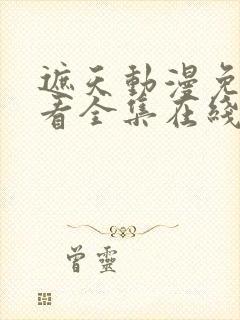 遮天動漫免
看全集在綫
曾靈